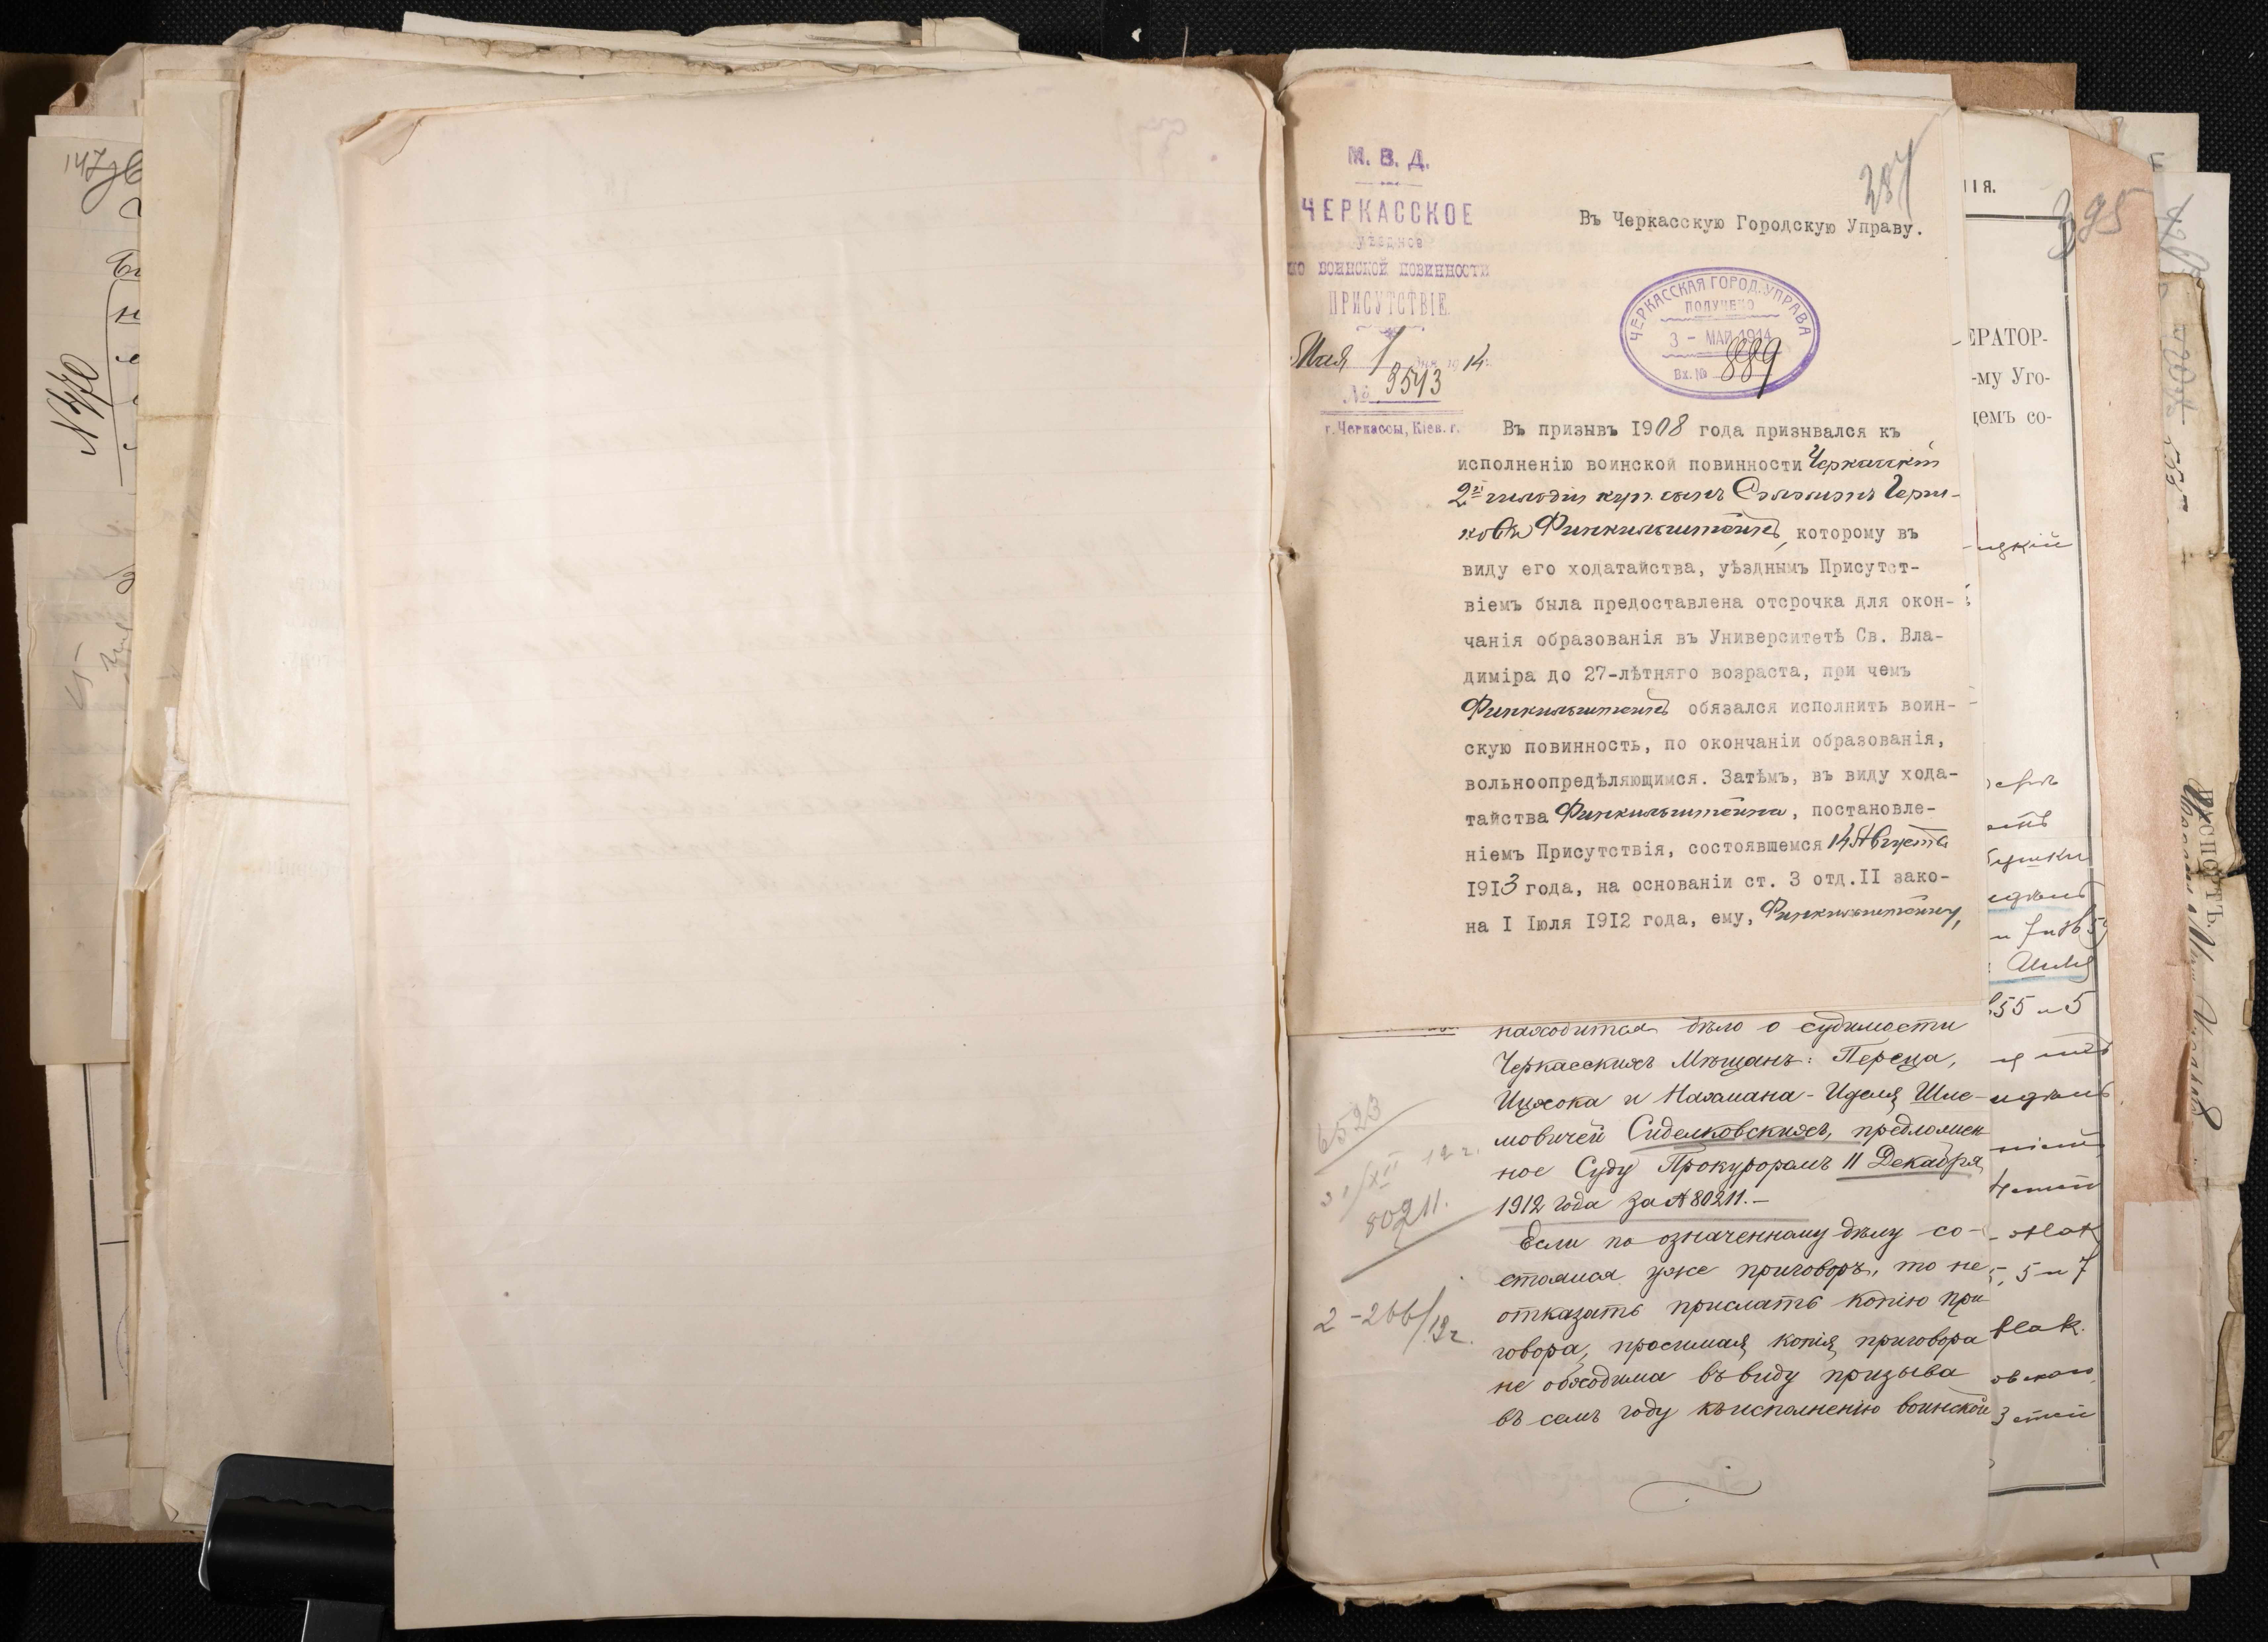 М. В. Д.
ЧЕРКАССКОЕ
уѣздное
по воинской повинности
ПРИСУТСТВІЕ.
Мая 1 дня 1914 г.
№ 3543
г. Черкассы, Кіев. г.
287
Въ Черкасскую Городскую Управу.
ЧЕРКАССКАЯ ГОРОД. УПРАВА
ПОЛУЧЕНО
3 - МАЙ 1914
Вх. № 889
Въ призывъ 1908 года призывался къ
исполненію воинской повинности Черкасскій
2й гильдіи куп. сынъ Герш-
ковъ Финкильштейнъ, которому въ
виду его ходатайства, уѣзднымъ Присутст-
віемъ была предоставлена отсрочка для окон-
чанія образованія въ Университетѣ Св. Вла-
диміра до 27-лѣтняго возраста, при чемъ
Финкильштейнъ обязался исполнить воин-
скую повинность, по окончаніи образованія,
вольноопредѣляющимся. Затѣмъ, въ виду хода-
тайства Финкильштейна, постановле-
ніемъ Присутствія, состоявшемся 14 Августа
1913 года, на основаніи ст. 3 отд. II зако-
на I Іюля 1912 года, ему, Финкильштейну,
находится дѣло о судимости
Черкасскихъ Мѣщанъ: Переца,
Ицхока и Нахмана-Иделя Шле-
мовичей Сиделковскихъ, предложен
ное Суду Прокуроромъ 11 Декабря
1912 года за № 80211.-
Если по означенному дѣлу со-
стоялся уже приговоръ, то не
отказать прислать копію при
говора, просимая копія приговора
не обходима въ виду призыва
въ семъ году къ исполненію воинской
6523
31/XII 12 г.
80211.
2-266/13 г.
147
N 470
ІЯ.
395
ЕРАТОР-
-му Уго-
цемъ со-
55 и 5
5 и 7
3 отъ